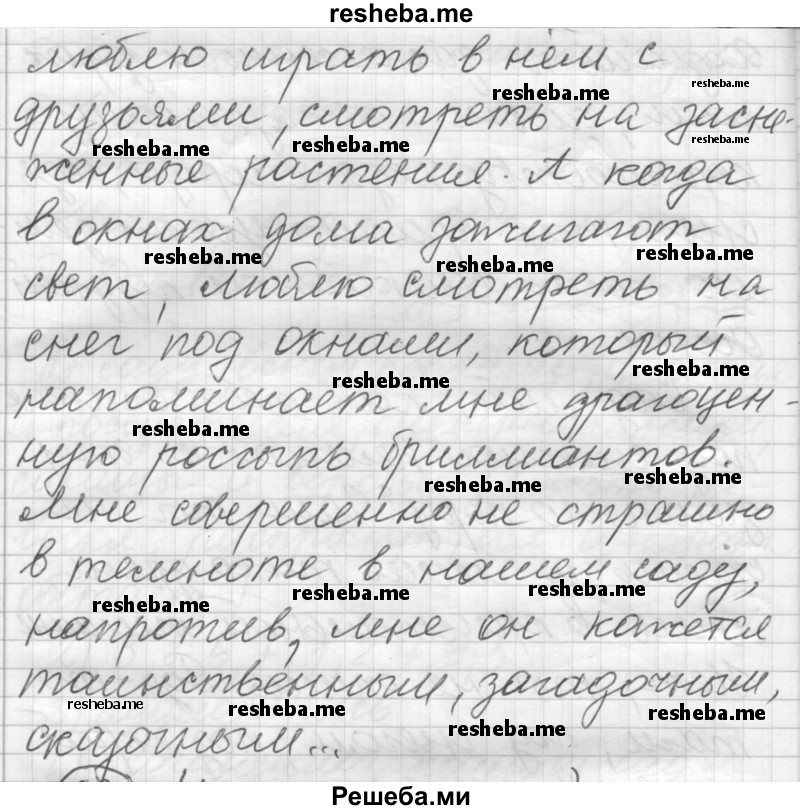 resheba.me
люблю играть в нём с
resheba.me resheba.me
друзьями, смотреть на засне-
resheba.me resheba.me resheba.me
женные растения. А когда
в окнах дома зажигают
resheba.me resheba.me resheba.me
свет, люблю смотреть на
снег под окнами, который
resheba.me resheba.me
напоминает мне драгоцен-
resheba.me
ную россыпь бриллиантов.
resheba.me resheba.me
Мне совершенно не страшно
в темноте в нашем саду,
resheba.me resheba.me resheba.me
напротив, мне он кажется
таинственным, загадочным,
resheba.me resheba.me resheba.me
сказочным...
resheba.me
Решеба.ми